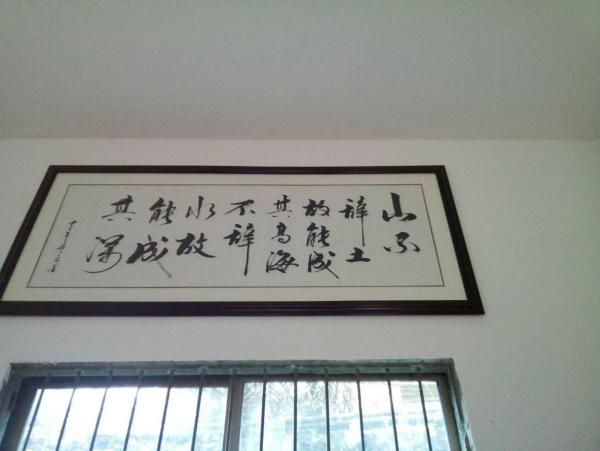 山不
辞土
故能成
其高海
不辞
水故
能成
其深